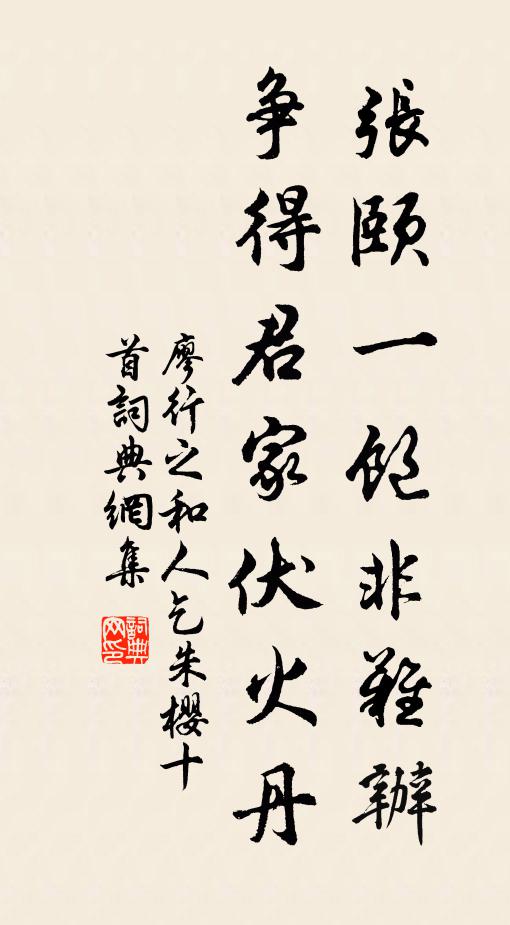 張頤一飽非難辦
争得君家伏火丹
廖行之和人乞朱櫻十
首詞典網集
詞典
网印